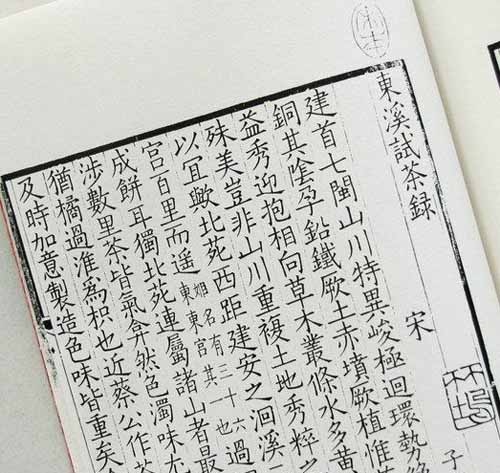 東溪試茶録
宋
子
建首七閩山川特異峻極迴環勢
銅其陰孕鉛鐵厥土赤墳厥植惟
益秀迎抱相向草木叢條水多黄
殊美豈非山川重複土地秀粹之
以宜歟北苑西距建安之洄溪
宫百里而遥
姬名有三十六
東東宫其一也
過
成餅耳獨北苑連屬諸山者最
涉數里茶皆氣弇然色濁味尤
猶橘過淮為枳也近蔡公作茶
及時加意製造色味皆重矣